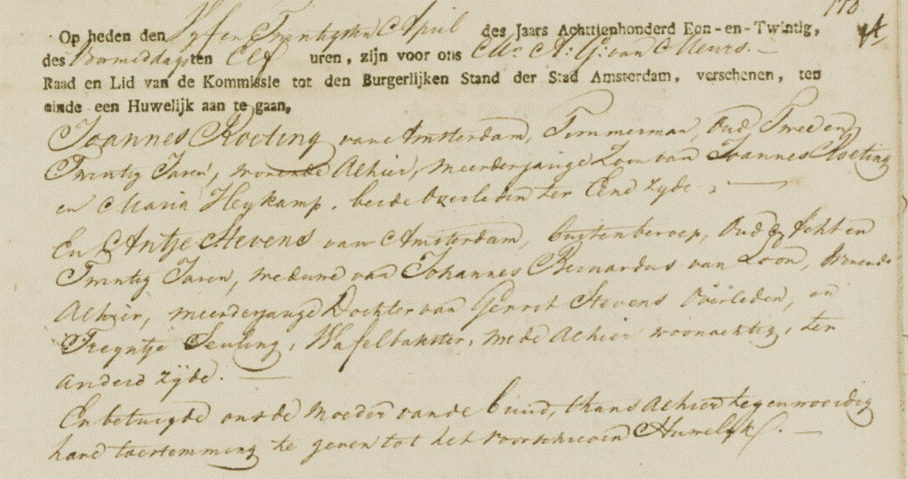 170
Op heden den Vyfen Twintigsten April des Jaars Achttienhonderd Een-en-Twintig,
des Voormiddags ten Elf uren, zijn voor ons Mr. A: G: van Meurs. —
Raad en Lid van de Kommissie tot den Burgerlijken Stand der Stad Amsterdam, verschenen, ten
einde een Huwelijk aan te gaan,
Joannes Roeting van Amsterdam, Timmerman, Oud Twee en
Twintig Jaren, wonende Alhier, meerderjarige Zoon van Joannes Roeting
en Maria Heykamp, beide Overleden ter Eene Zyde, —
En Antje Stevens van Amsterdam, buiten beroep, Oud Acht en
Twintig Jaren, weduwe van Johannes Bernardus van Loon, Wonende
Alhier, meerderjarige Dochter van Gerrit Stevens Overleden, en
Treyntje Seuling, Wafelbakster, mede Alhier woonachtig, ter
andere zyde. —
En betuigde ons de Moeder van de bruid, thans Alhier tegenwoordig
hare toestemming te geven tot het voorschreven Huwelyk. —